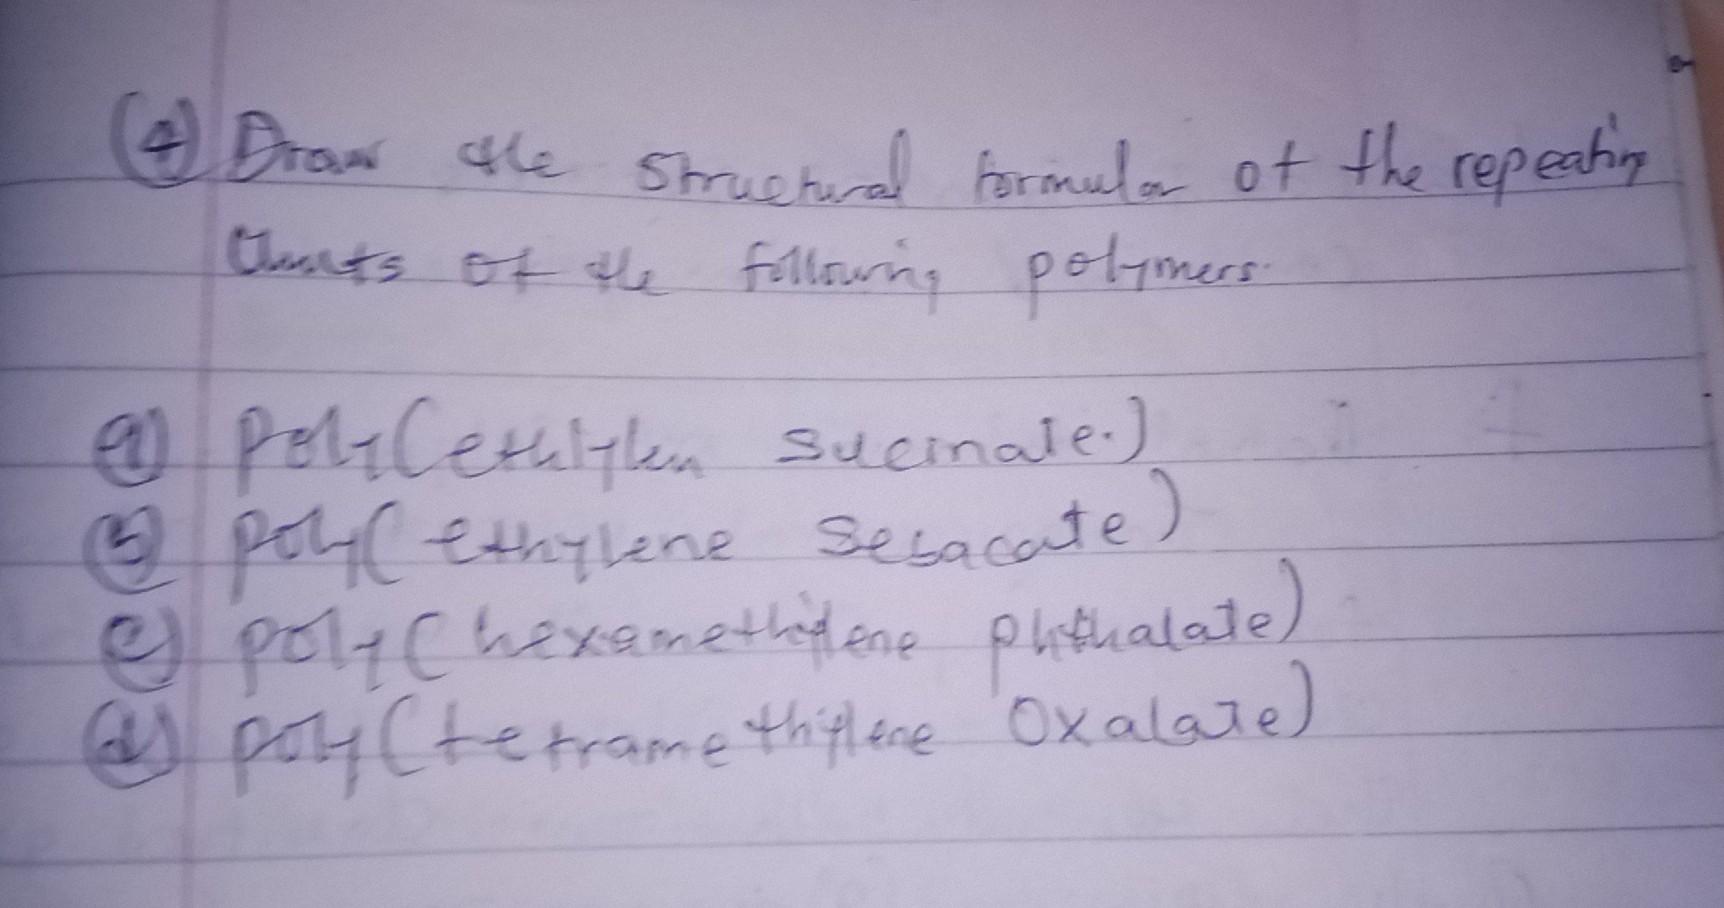 (4) Draw the Structural formular of the repeating
Units of the following polymers.
a) Poly(ethylen sucinate.)
b) poly(ethylene Sebacate)
c) poly(hexamethylene phthalate)
d) poly(tetramethylene Oxalate)